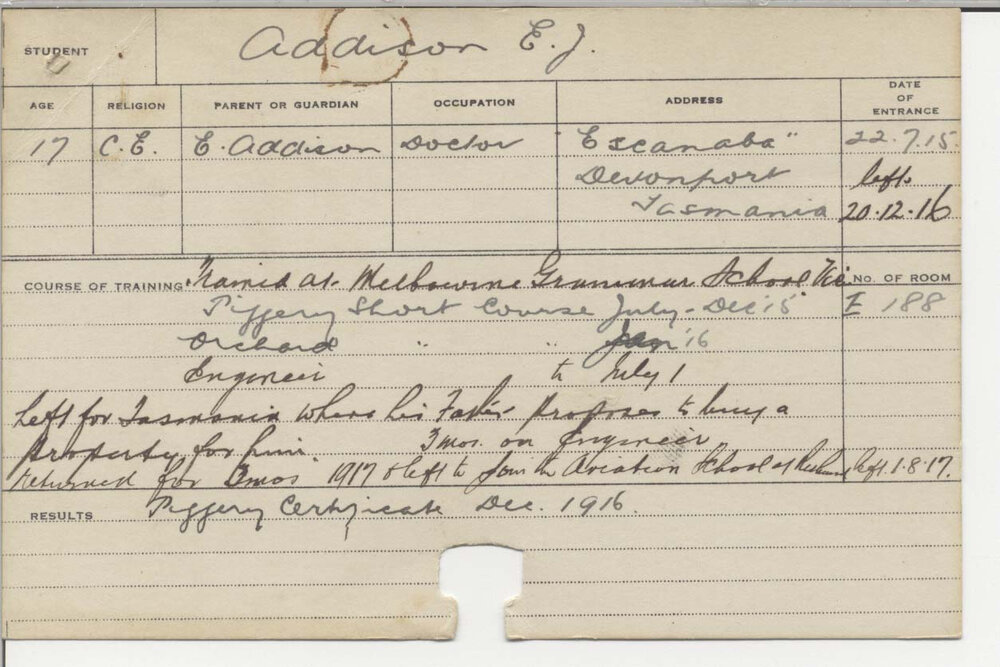 STUDENT Addison E.J.
AGE RELIGION PARENT OR GUARDIAN OCCUPATION ADDRESS DATE OF ENTRANCE
17 C.E. E. Addison Doctor "Escanaba" 22.7.15.
Devonport left
Tasmania 20.12.16
COURSE OF TRAINING Trained at Melbourne Grammar School Vic NO. OF ROOM
Piggery Short Course July - Dec '15 E 188
Orchard " " Jan '16
Engineer to July 1
Left for Tasmania where his Father proposes to buy a
property for him. 3 mos. on Engineer
Returned for 3 mos 1917 & left to join the Aviation School at left 1.8.17.
RESULTS Piggery Certificate Dec. 1916.